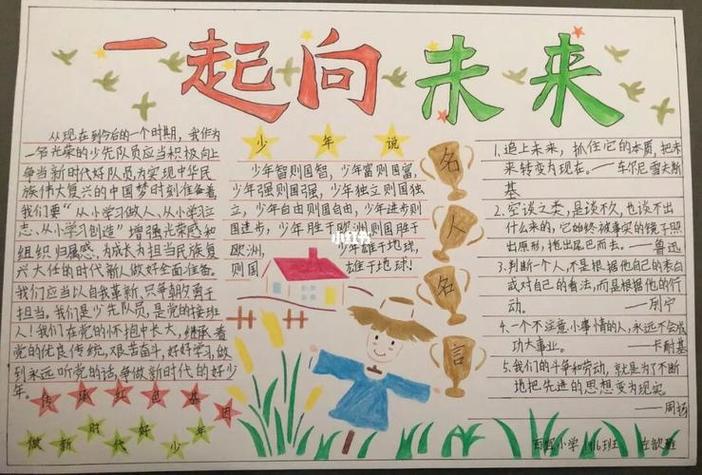 一起向未来
从现在到今后的一个时期，我作为
一名光荣的少先队员应当积极向上
争当新时代好队员，为实现中华民
族伟大复兴的中国梦时刻准备着
我们要“从小学习做人、从小学习立
志、从小学习创造”增强光荣感和
组织归属感，为成长为担当民族复
兴大任的时代新人做好全面准备。
我们应当以自我革新，只争朝夕勇于
担当。我们是少先队员，是党的接班
人！我们在党的怀抱中长大，继承着
党的优良传统，艰苦奋斗，好好学习，做
到永远听党的话，争做新时代的好少
年。
传承红色基因
做新时代好少年
少年说
少年智则国智，少年富则国富，
少年强则国强，少年独立则国独
立，少年自由则国自由，少年进步则
国进步，少年胜于欧洲则国胜于
欧洲，少年雄于地球，
则国雄于地球！
小红书
名人名言
1.追上未来，抓住它的本质，把未
来转变为现在。——车尔尼雪夫斯
基
2.空谈之类，是谈不久，也谈不出
什么来的，它始终被事实的镜子照
出原形，拖出尾巴而去。——鲁迅
3.判断一个人，不是根据他自己的表白
或对自己的看法，而是根据他的行
动。——列宁
4.一个不注意小事情的人，永远不会成
功大事业。——卡耐基
5.我们的斗争和劳动，就是为了不断
地把先进的思想变为现实。
——周扬
小学 班